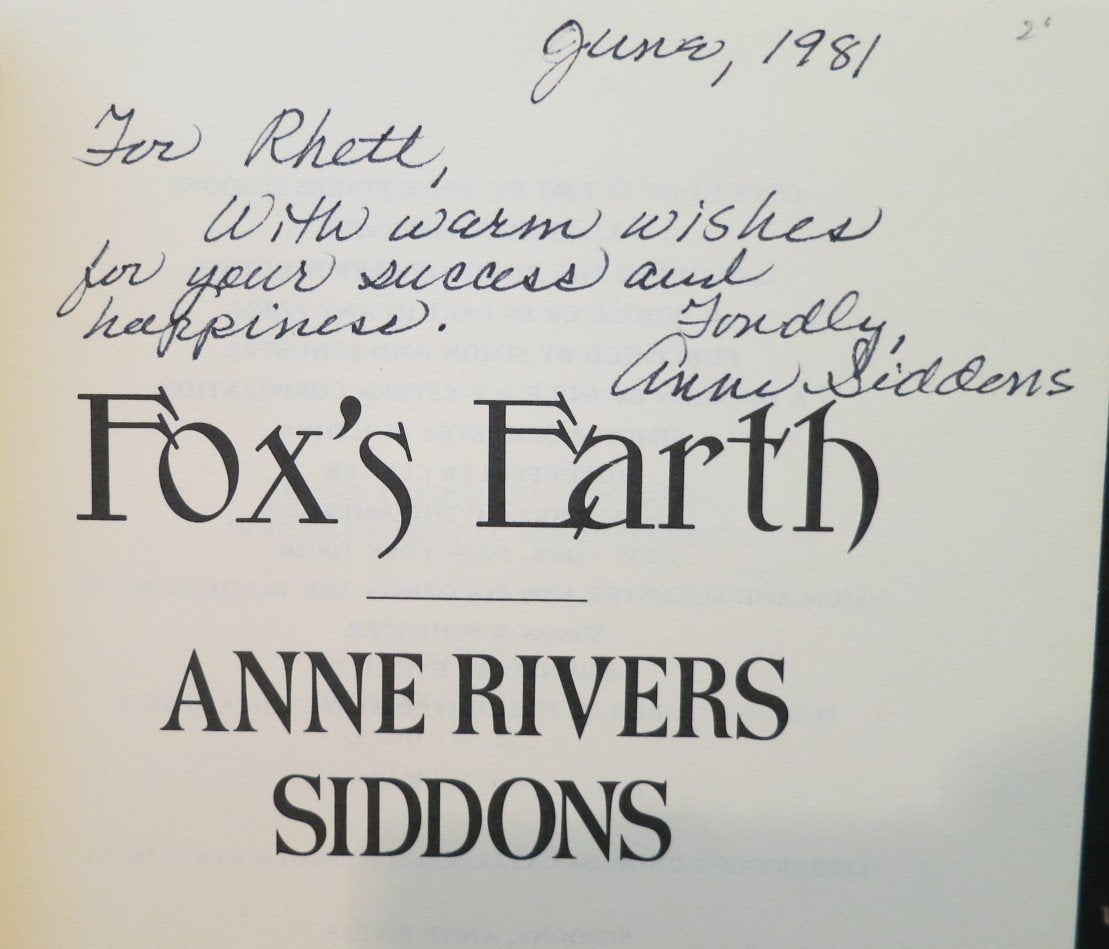 June, 1981
For Rhett,
With warm wishes
for your success and
happiness.
Fondly,
Anne Siddons
Fox's Earth
ANNE RIVERS
SIDDONS